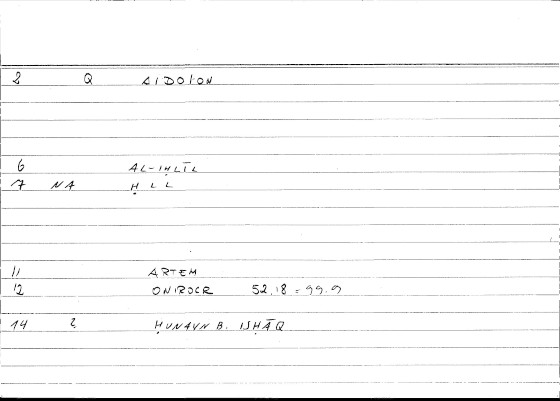 2 Q AIDOI'ON
6 AL-IḤLĪL
7 NA ḤLL
11 ARTEM
12 ONIROCR 52,18 = 99.9
14 ? ḤUNAYN B. ISḤĀQ